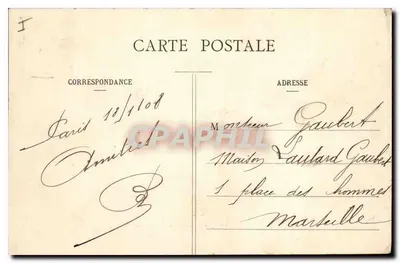 I
CARTE POSTALE
CORRESPONDANCE
ADRESSE
Paris 12/1/08
Amitiés
Monsieur Gaubert
Maison Lautard Gaubert
1 place des hommes
Marseille
CARTAPHIL